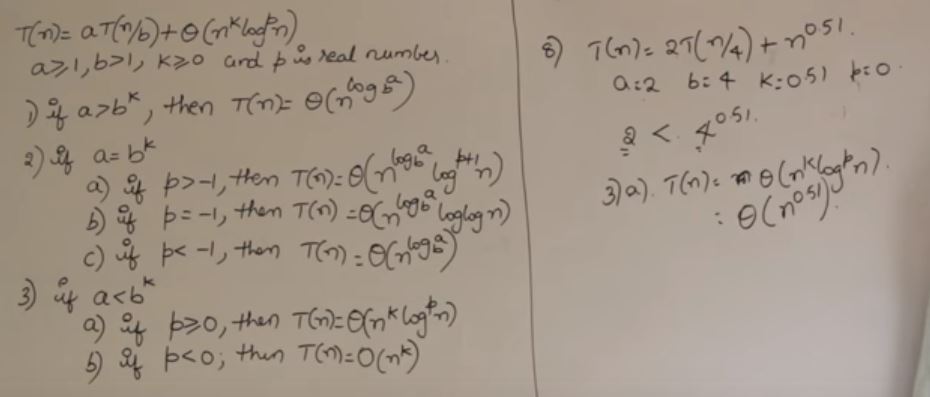 T(n)= aT(n/b)+θ(n^k log^p n)
a≥1, b>1, k≥0 and p is real number.
1) if a>b^k, then T(n)= θ(n^log_b^a)
2) if a=b^k
a) if p>-1, then T(n)=θ(n^log_b^a log^p+1 n)
b) if p=-1, then T(n)=θ(n^log_b^a loglogn)
c) if p<-1, then T(n)=θ(n^log_b^a)
3) if a<b^k
a) if p≥0, then T(n)=θ(n^k log^p n)
b) if p<0; then T(n)=O(n^k)
8) T(n)= 2T(n/4)+n^0.51.
a=2 b=4 k=0.51 p=0.
2 < 4^0.51.
3)a). T(n)= θ(n^k log^p n).
= θ(n^0.51).